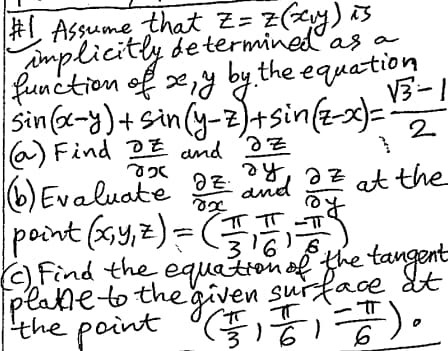 #1 Assume that z = z(x,y) is
implicitly determined as a
function of x,y by the equation
sin(x-y)+sin(y-z)+sin(z-x)= (√3-1)/2
(a) Find ∂z/∂x and ∂z/∂y,
(b) Evaluate ∂z/∂x and ∂z/∂y at the
point (x,y,z) = (π/3, π/6, -π/6)
(c) Find the equation of the tangent
plane to the given surface at
the point (π/3, π/6, -π/6).